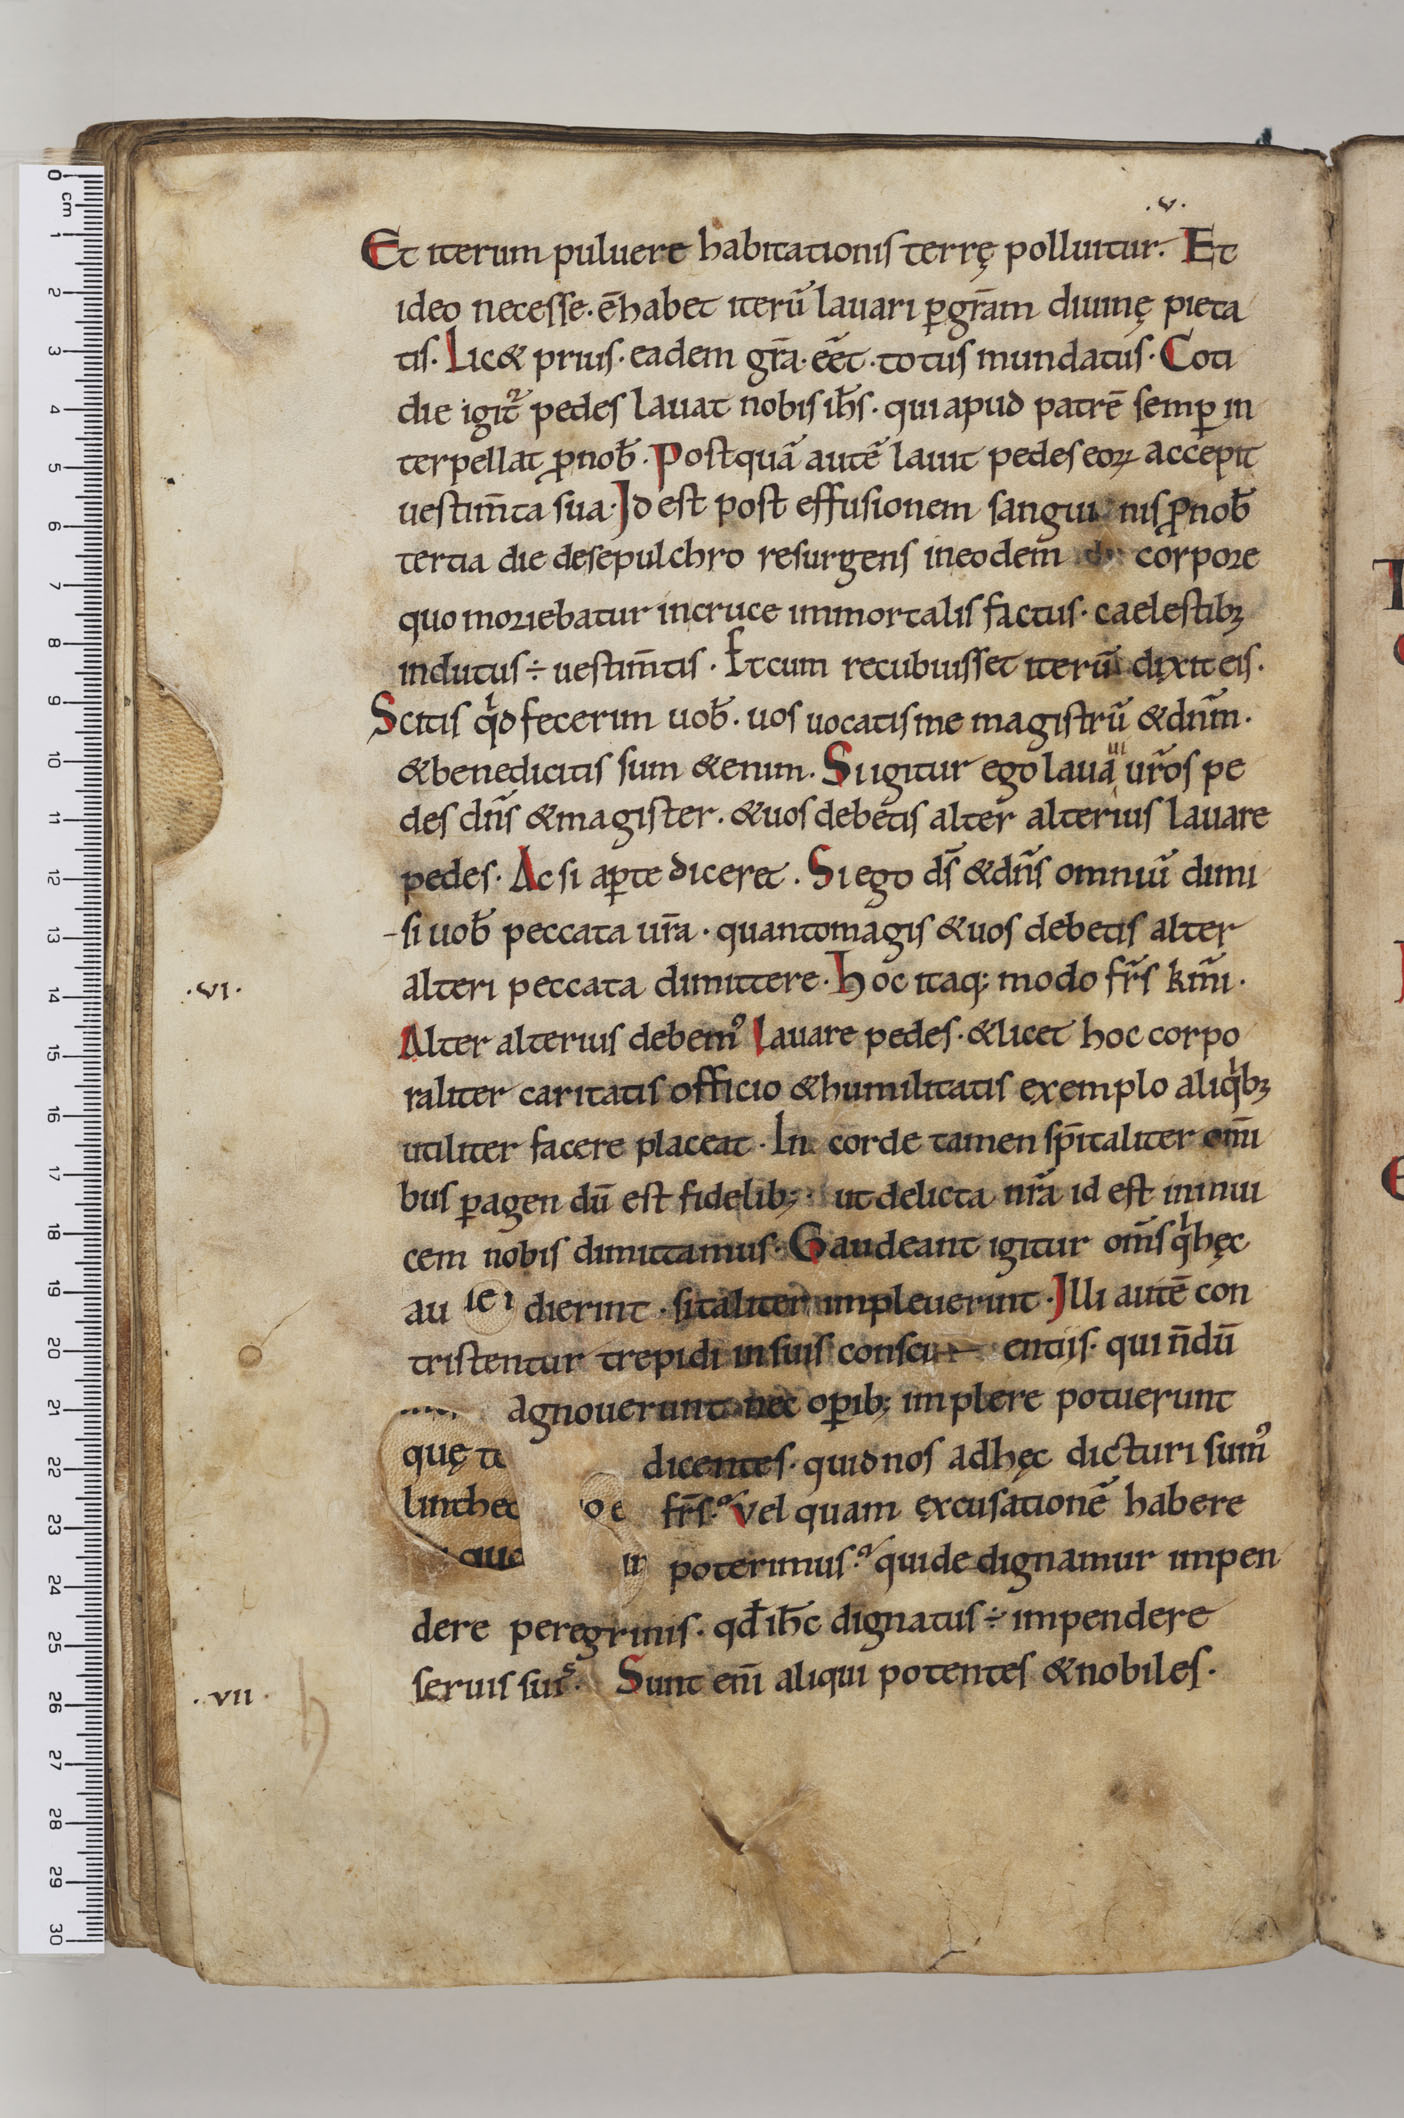 .v.
Et iterum puluere habitationis terrę polluitur. Et
ideo necesse. ē habet iterū lauari ꝑ gr̄am diuinę pieta
tis. Lic& prius. eadem gr̄a. eēt. totus mundatus. Coti
die igit᷑ pedes lauat nobis ih̄s. qui apud patrē semꝑ in
terpellat ꝓ nob̄. Postquā autē lauit pedes eoꝝ accepit
uestim̄ta sua. Id est post effusionem sangui nis ꝓ nob̄
tertia die de sepulchro resurgens in eodem corpore
quo moriebatur in cruce immortalis factus. caelestibꝫ
indutus ÷ uestim̄tis. Et cum recubuisset iterū dixit eis.
Scitis qͥd fecerim uob̄. uos uocatis me magistrū & dn̄m.
& benedicitis sum & enim. Si igitur ego lauā ur̄os pe
des dn̄s & magister. & uos debetis alter alterius lauare
pedes. Ac si aꝑte diceret. Si ego ds̄ & dn̄s omniū dimi
si uob̄ peccata ur̄a. quanto magis & uos debetis alter
alteri peccata dimittere. Hoc itaq; modo fr̄s km̄i.
.vi.
Alter alterius debemꝰ lauare pedes. & licet hoc corpo
raliter caritatis officio & humilitatis exemplo aliqͥbꝫ
utiliter facere placeat. In corde tamen sp̄italiter om̄i
bus ꝑagen dū est fidelib; ut delicta nr̄a id est in inui
cem nobis dimittamus. Gaudeant igitur om̄s qͥ hęc
au ie dierint. sitaliter impleuerint. Illi autē con
tristentur trepidi in suis consci entiis. qui n̄dū
agnouerunt nec oꝑib; implere potuerunt
quę dicentes. quid nos ad hęc dicturi sumꝰ
fr̄s. Vel quam excusationē habere
que poterimus. qui dedignamur impen
dere peregrinis. qd̄ ih̄c dignatus ÷ impendere
seruis suis. Sunt eni̅ aliqui potentes & nobiles.
.vii.